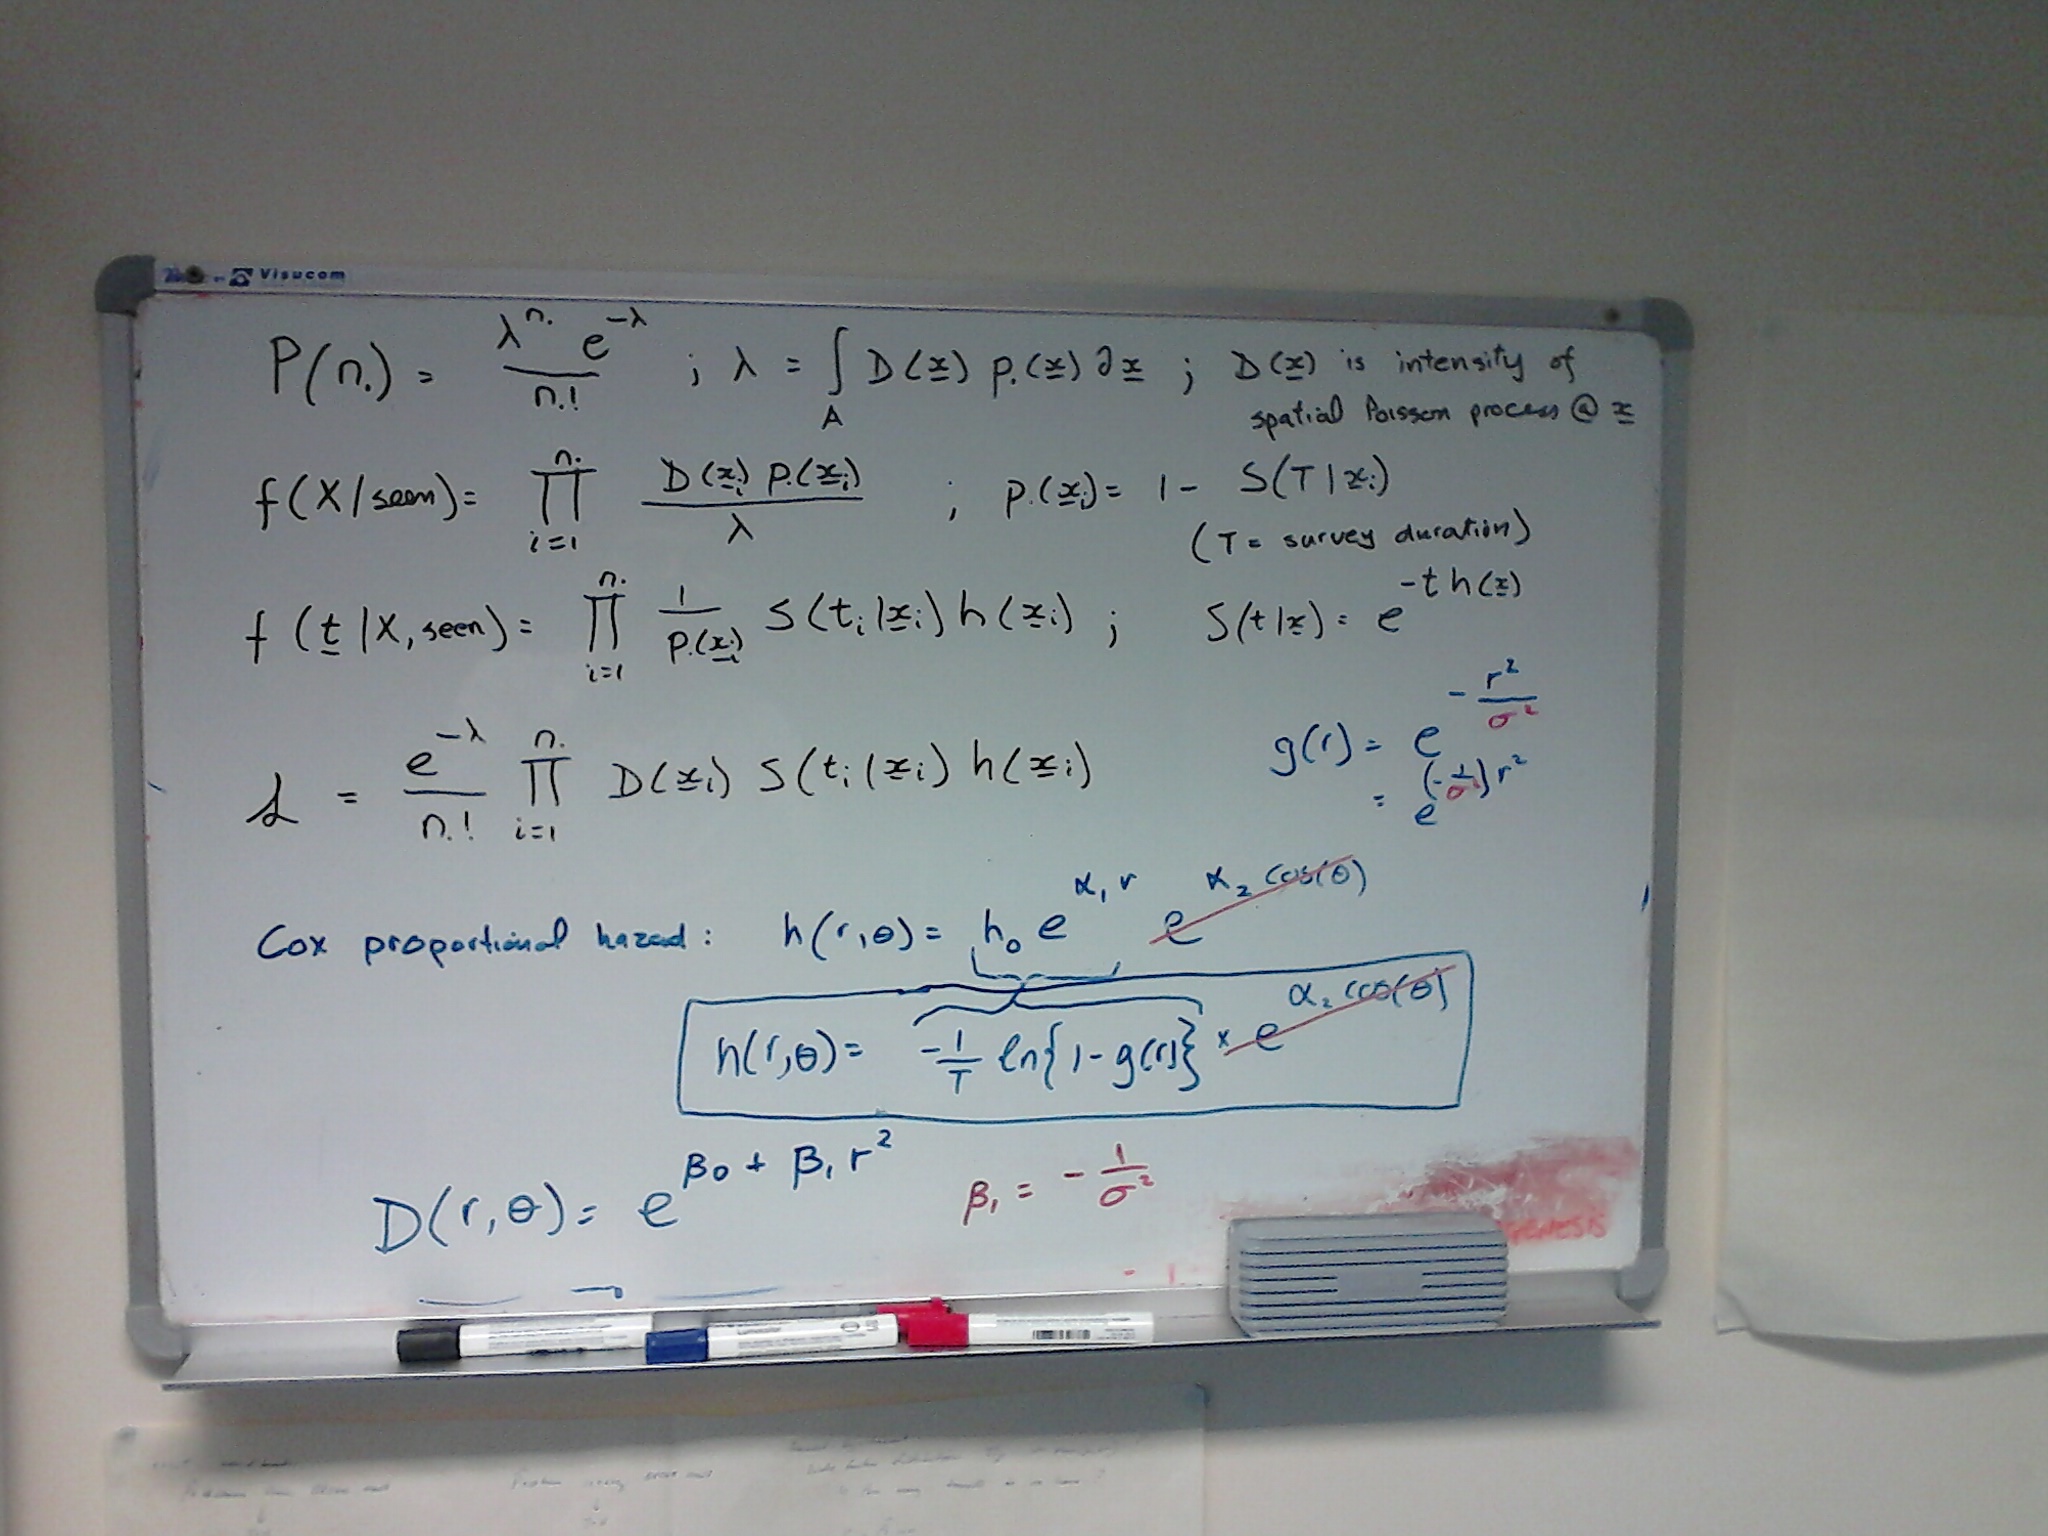 Visucom
P(n.) = λ^n. e^-λ / n.! ; λ = ∫_A D(x) p.(x) ∂x ; D(x) is intensity of
spatial Poisson process @ x
f(X|seen) = ∏_{i=1}^{n.} D(x_i) p.(x_i) / λ ; p.(x_i) = 1 - S(T|x_i)
(T = survey duration)
f(t|X, seen) = ∏_{i=1}^{n.} 1/p.(x_i) S(t_i|x_i) h(x_i) ; S(t|x) = e^{-t h(x)}
g(r) = e^{-r²/σ²}
= e^{(-1/σ²) r²}
L = e^-λ / n.! ∏_{i=1}^{n.} D(x_i) S(t_i|x_i) h(x_i)
Cox proportional hazard: h(r,θ) = h₀ e^{α₁ r} e^{α₂ cos(θ)}
h(r,θ) = -1/T ln{1-g(r)} × e^{α₂ cos(θ)}
D(r,θ) = e^{β₀ + β₁ r²} β₁ = -1/σ²